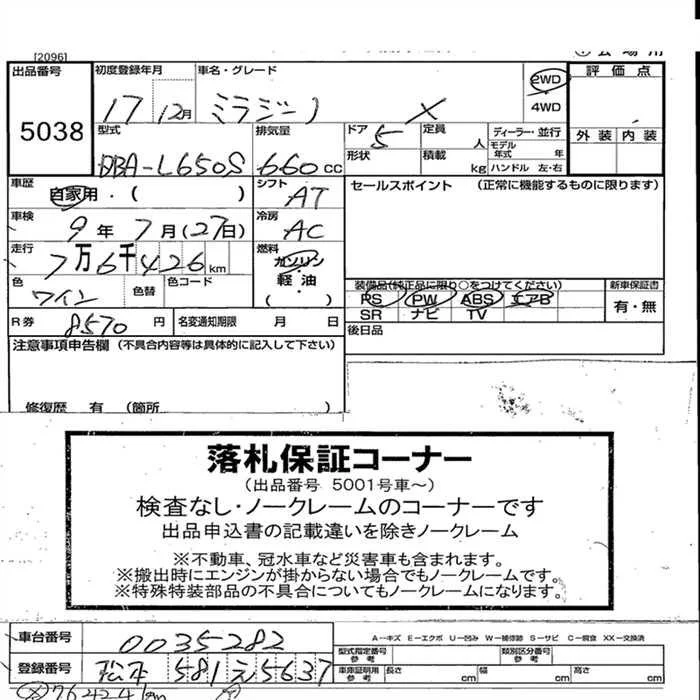 [2096]
出品番号 5038
初度登録年月 17 12月
車名・グレード ミラジーノ X
2WD
4WD
評価点
外装 内装
型式 DBA-L650S
排気量 660 CC
ドア 5
形状
定員 人
積載 kg
ディーラー・並行
モデル年式 年
ハンドル 左・右
車歴 自家用・( )
シフト AT
セールスポイント (正常に機能するものに限ります)
車検 9年 7月(27日)
冷房 AC
走行 7万6千426km
燃料 ガソリン
軽油
( )
色 ワイン
色替
色コード
装備品(純正品に限り○をつけてください)
PS PW ABS エアB
SR ナビ TV
新車保証書
有・無
R券 8570 円
名変通知期限 月 日
後日品
注意事項申告欄 (不具合内容等は具体的に記入して下さい)
修復歴 有 (箇所 )
落札保証コーナー
(出品番号 5001号車~)
検査なし・ノークレームのコーナーです
出品申込書の記載違いを除きノークレーム
※不動車、冠水車など災害車も含まれます。
※搬出時にエンジンが掛からない場合でもノークレームです。
※特殊特装部品の不具合についてもノークレームになります。
車台番号 0035282
A-キズ E-エクボ U-凹み W-補修跡 S-サビ C-腐食 XX-交換済
登録番号 松本 581 え 5637
型式指定番号 参考
類別区分番号 参考
車庫証明用 参考 長さ cm 幅 cm 高さ cm
76424km